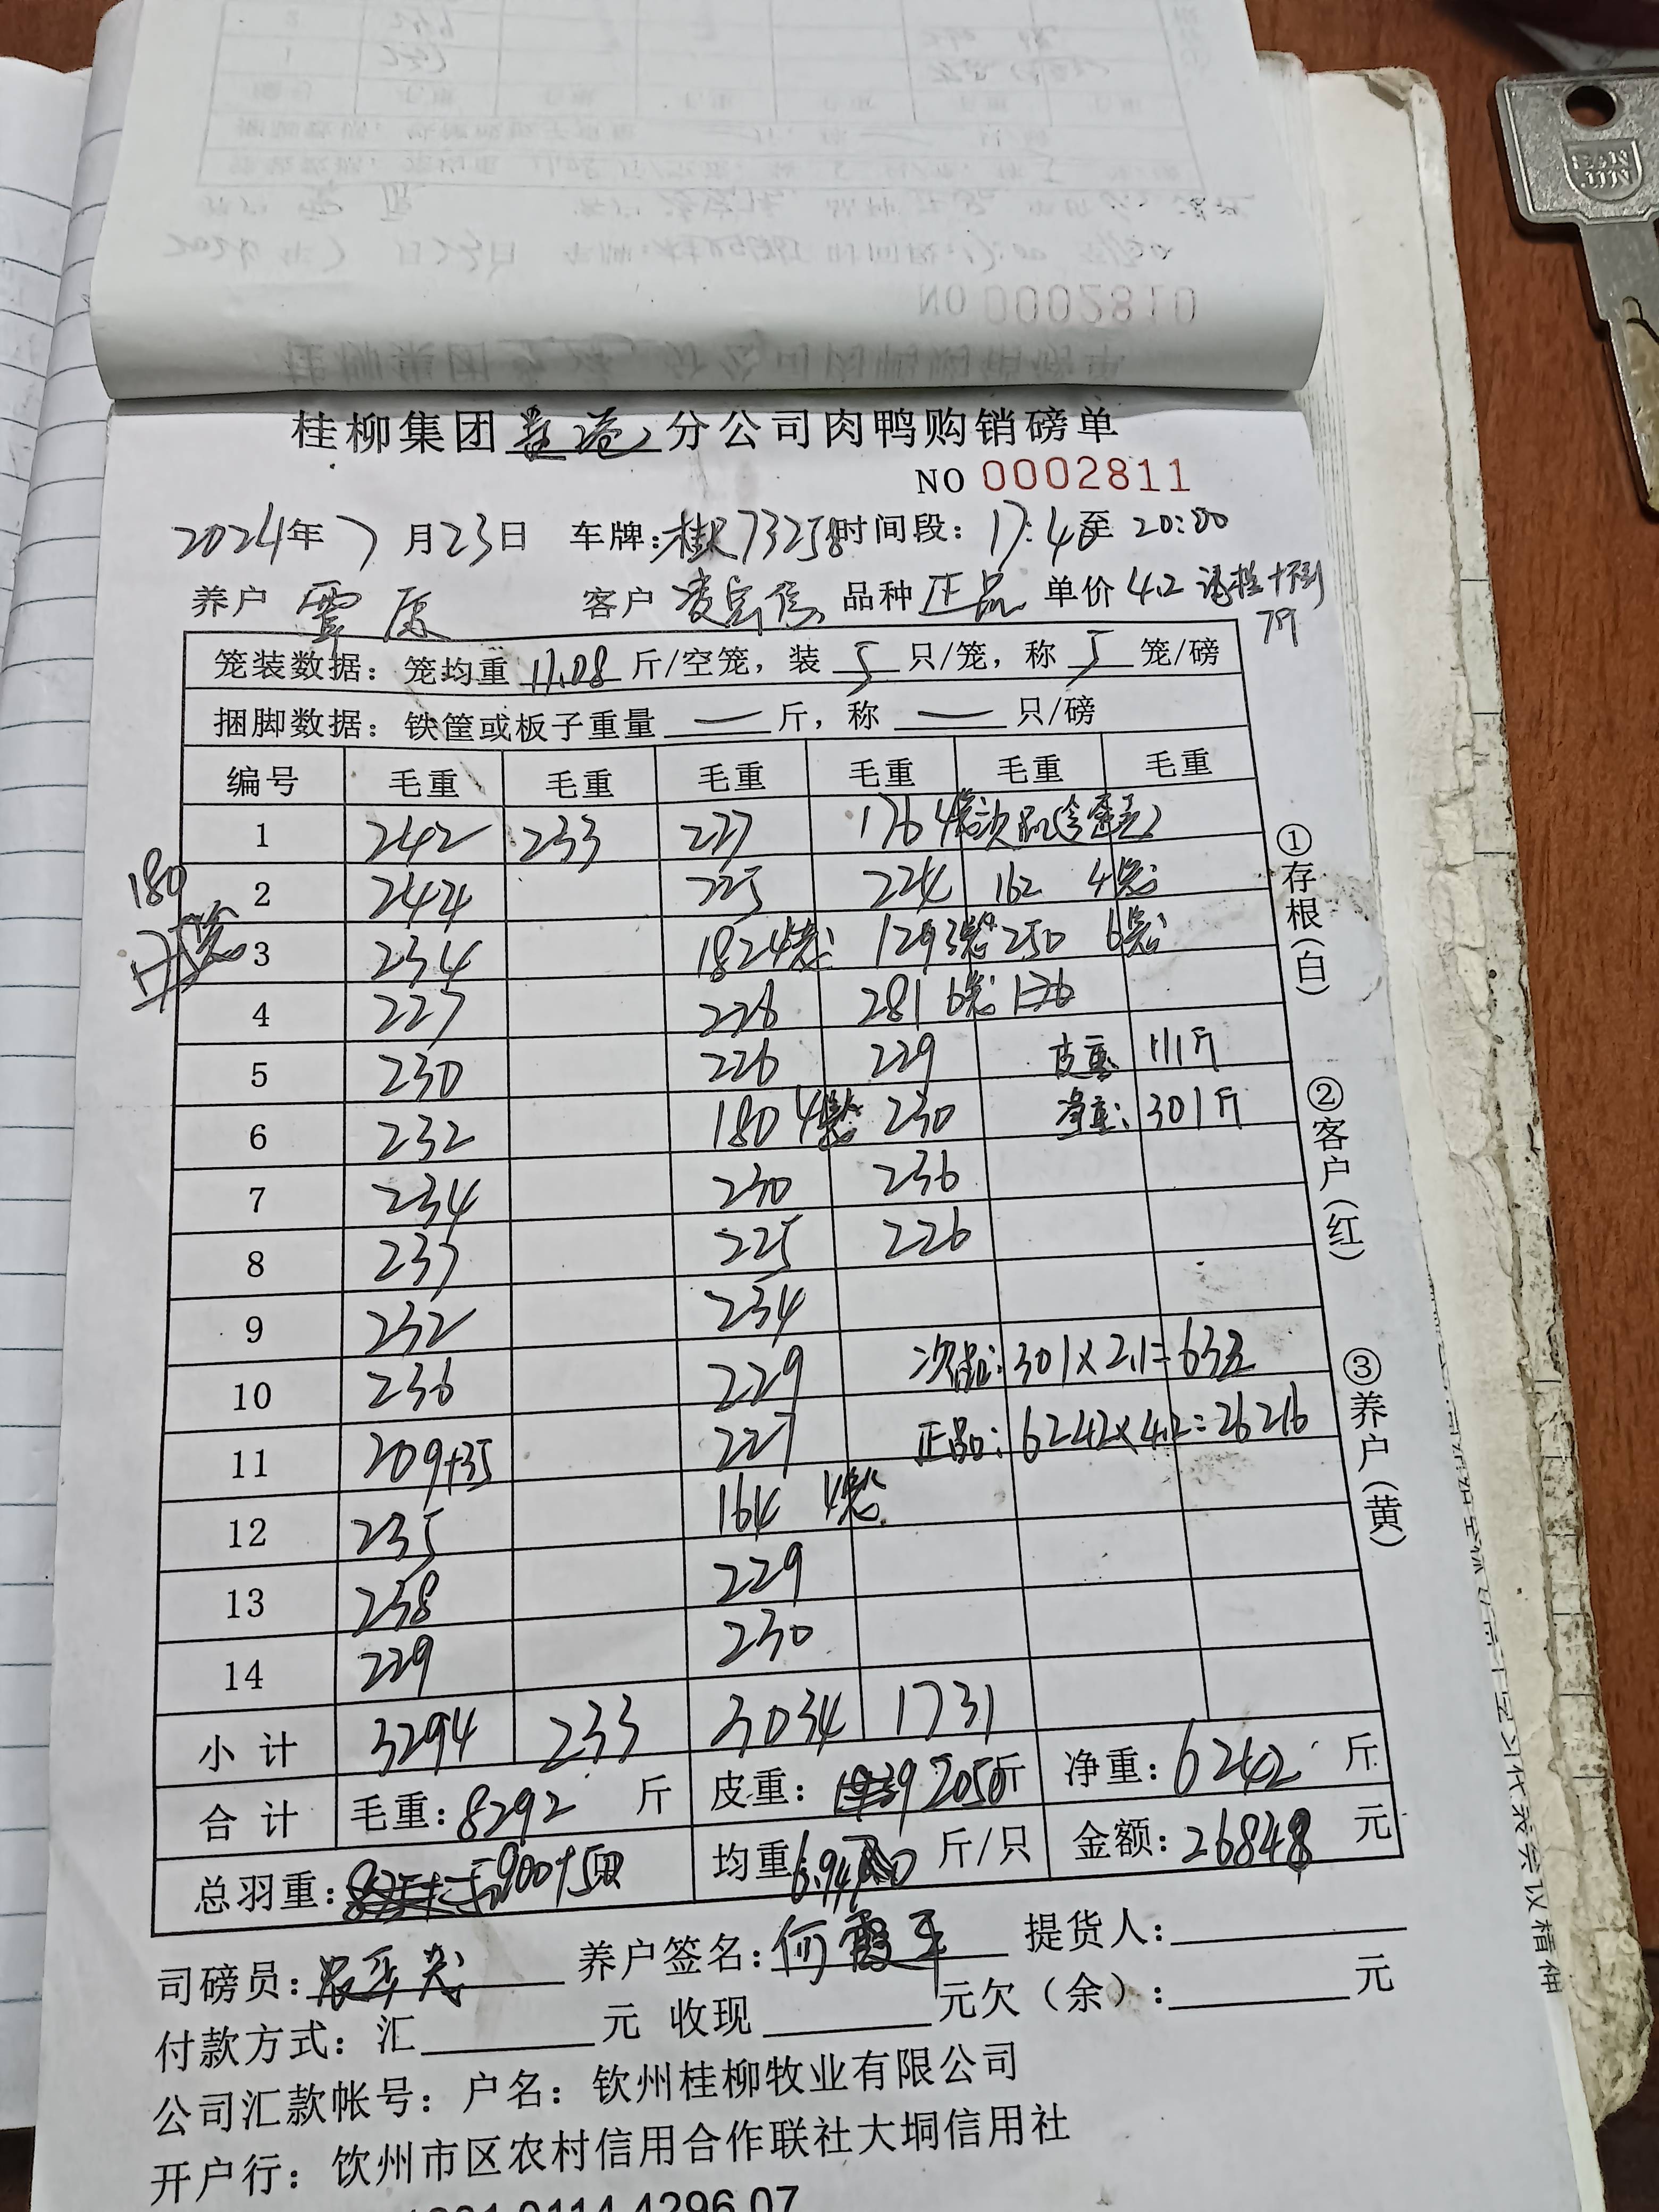 NO 0002810
桂柳集团贵港分公司肉鸭购销磅单
NO 0002811
2024年7月23日 车牌:桂R73258 时间段:17:40至20:00
养户 覃原 客户 品种 正品 单价 4.2
79
笼装数据:笼均重 11.08 斤/空笼,装 5 只/笼,称 5 笼/磅
捆脚数据:铁筐或板子重量 — 斤,称 — 只/磅
编号 毛重 毛重 毛重 毛重 毛重 毛重
1 242 233 227 176 4笼 次品
2 244 225 224 162 4笼
180
3 234 182 4笼 129 3笼 250 6笼
4 227 226 281 6笼 1=36
5 230 226 229 皮重 111斤
6 232 180 4笼 230 净重:301斤
7 234 230 236
8 237 225 226
9 232 234
10 236 229 次品:301×2.1=632
11 209+35 227 正品:6242×4.2=26216
12 235 164 4笼
13 238 229
14 229 230
小计 3294 233 3034 1731
合计 毛重:8292 斤 皮重:2050斤 净重:6242 斤
总羽重:900+5 均重:6.94 斤/只 金额:26848 元
①存根(白)
②客户(红)
③养户(黄)
司磅员: 养户签名:何霞平 提货人:
付款方式:汇 元 收现 元欠(余): 元
公司汇款帐号:户名:钦州桂柳牧业有限公司
开户行:钦州市区农村信用合作联社大垌信用社